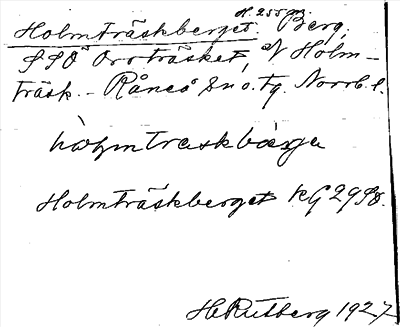 H. 255 m.
Holmträskberget. Berg,
SSO Orrträsket, N Holm-
träsk. - Råneå Sn o. Tg. Norrb. l.
hòlmtraskbàrga
Holmträskberget KG 29 SO.
H Rutberg 1927